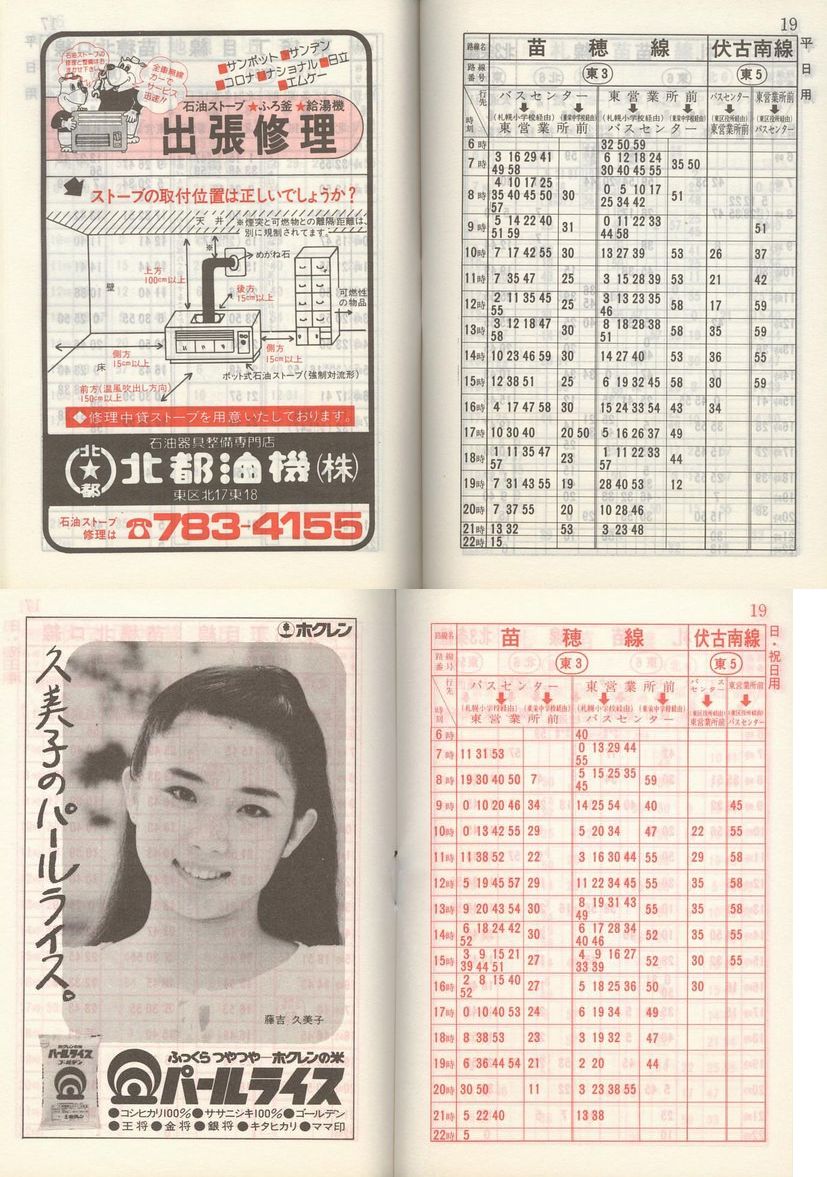 石油ストーブの
修理と整備はお
まかせ下さい
全車無線
カーで
サービス
迅速!!
■サンポット■サンデン
■コロナ■ナショナル■日立
■エムケー
石油ストーブ★ふろ釜★給湯機
出張修理
ストーブの取付位置は正しいでしょうか?
天井
※煙突と可燃物との離隔距離は
別に規制されてます。
※
めがね石
上方
100cm以上
後方
15cm以上
壁
可燃性
の物品
側方
15cm以上
側方
15cm以上
床
ポット式石油ストーブ(強制対流形)
前方(温風吹出し方向)
150cm以上
◆修理中貸ストーブを用意いたしております。
石油器具整備専門店
北★都
北都油機(株)
東区北17東18
石油ストーブ
修理は
☎783-4155
19
平日用
路線名 苗穂線 伏古南線
路線番号 東3 東5
行先 バスセンター 東営業所前 バスセンター 東営業所前
時刻 (札幌小学校経由) (東栄中学校経由) (札幌小学校経由) (東栄中学校経由) (東区役所経由) (東区役所経由)
東営業所前 バスセンター 東営業所前 バスセンター
6時 32 50 59
7時 3 16 29 41 49 58 6 12 18 24 30 40 45 55 35 50
8時 4 10 17 25 35 40 45 50 57 30 0 5 10 17 25 34 42 51
9時 5 14 22 40 51 59 31 0 11 22 33 44 58 51
10時 7 17 42 55 30 13 27 39 53 26 37
11時 7 35 47 25 3 15 28 39 53 21 42
12時 2 11 35 45 55 25 3 13 23 35 46 58 17 59
13時 3 12 18 47 58 30 8 18 28 38 51 58 35 59
14時 10 23 46 59 30 14 27 40 53 36 55
15時 12 38 51 25 6 19 32 45 58 30 59
16時 4 17 47 58 30 15 24 33 54 43 34
17時 10 30 40 20 50 5 16 26 37 49
18時 1 11 35 47 57 23 1 11 22 33 57 44
19時 7 31 43 55 19 28 40 53 12
20時 7 37 55 20 10 28 46
21時 13 32 53 3 23 48
22時 15
ホクレン
久美子のパールライス。
藤吉 久美子
パールライス
ゴールデン
ふっくらつやつや―ホクレンの米
パールライス
●コシヒカリ100%●ササニシキ100%●ゴールデン
●王将●金将●銀将●キタヒカリ●ママ印
19
日・祝日用
路線名 苗穂線 伏古南線
路線番号 東3 東5
行先 バスセンター 東営業所前 バスセンター 東営業所前
時刻 (札幌小学校経由) (東栄中学校経由) (札幌小学校経由) (東栄中学校経由) (東区役所経由) (東区役所経由)
東営業所前 バスセンター 東営業所前 バスセンター
6時 40
7時 11 31 53 0 13 29 44 55
8時 19 30 40 50 7 5 15 25 35 45 59
9時 0 10 20 46 34 14 25 54 40 45
10時 0 13 42 55 29 5 20 34 47 22 55
11時 11 38 52 22 3 16 30 44 55 29 58
12時 5 19 45 57 29 11 22 34 45 55 35 58
13時 9 20 43 54 30 8 19 31 43 49 55 35 58
14時 6 18 24 42 52 30 6 17 28 34 40 46 52 35 55
15時 3 9 15 21 39 44 51 27 4 9 16 27 33 39 52 30 55
16時 2 8 15 40 52 27 5 18 25 36 50 30
17時 0 10 40 53 24 6 19 34 49
18時 8 38 53 23 3 19 32 47
19時 6 36 44 54 21 2 20 44
20時 30 50 11 3 23 38 55
21時 5 22 40 13 38
22時 5